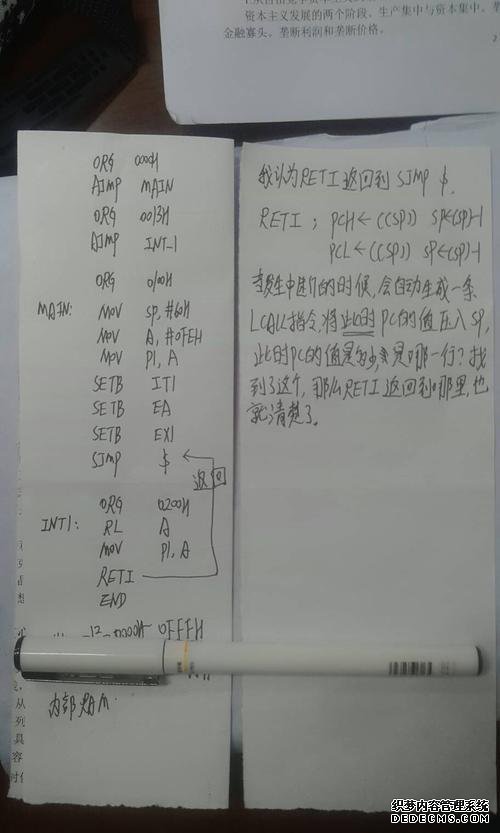 资本主义发展的两个阶段、生产集中与资本集中、垄
金融寡头、垄断利润和垄断价格。
2
ORG 0000H
AJMP MAIN
ORG 0013H
AJMP INT1
ORG 0100H
MAIN: MOV SP, #60H
MOV A, #0FEH
MOV P1, A
SETB IT1
SETB EA
SETB EX1
SJMP $
返回
ORG 0200H
INT1: RL A
MOV P1, A
RETI
END
0FFFH
内部RAM.
我认为RETI返回到 SJMP $.
RETI ; PCH←((SP)) SP←(SP)-1
PCL←((SP)) SP←(SP)-1
当发生中断的时候,会自动生成一条
LCALL指令,将此时PC的值压入SP,
此时PC的值是多少,是哪一行?找
到了这个,那么RETI返回到哪里,也
就清楚了。
从
列
具
容
织梦内容管理系统
DEDECMS.COM